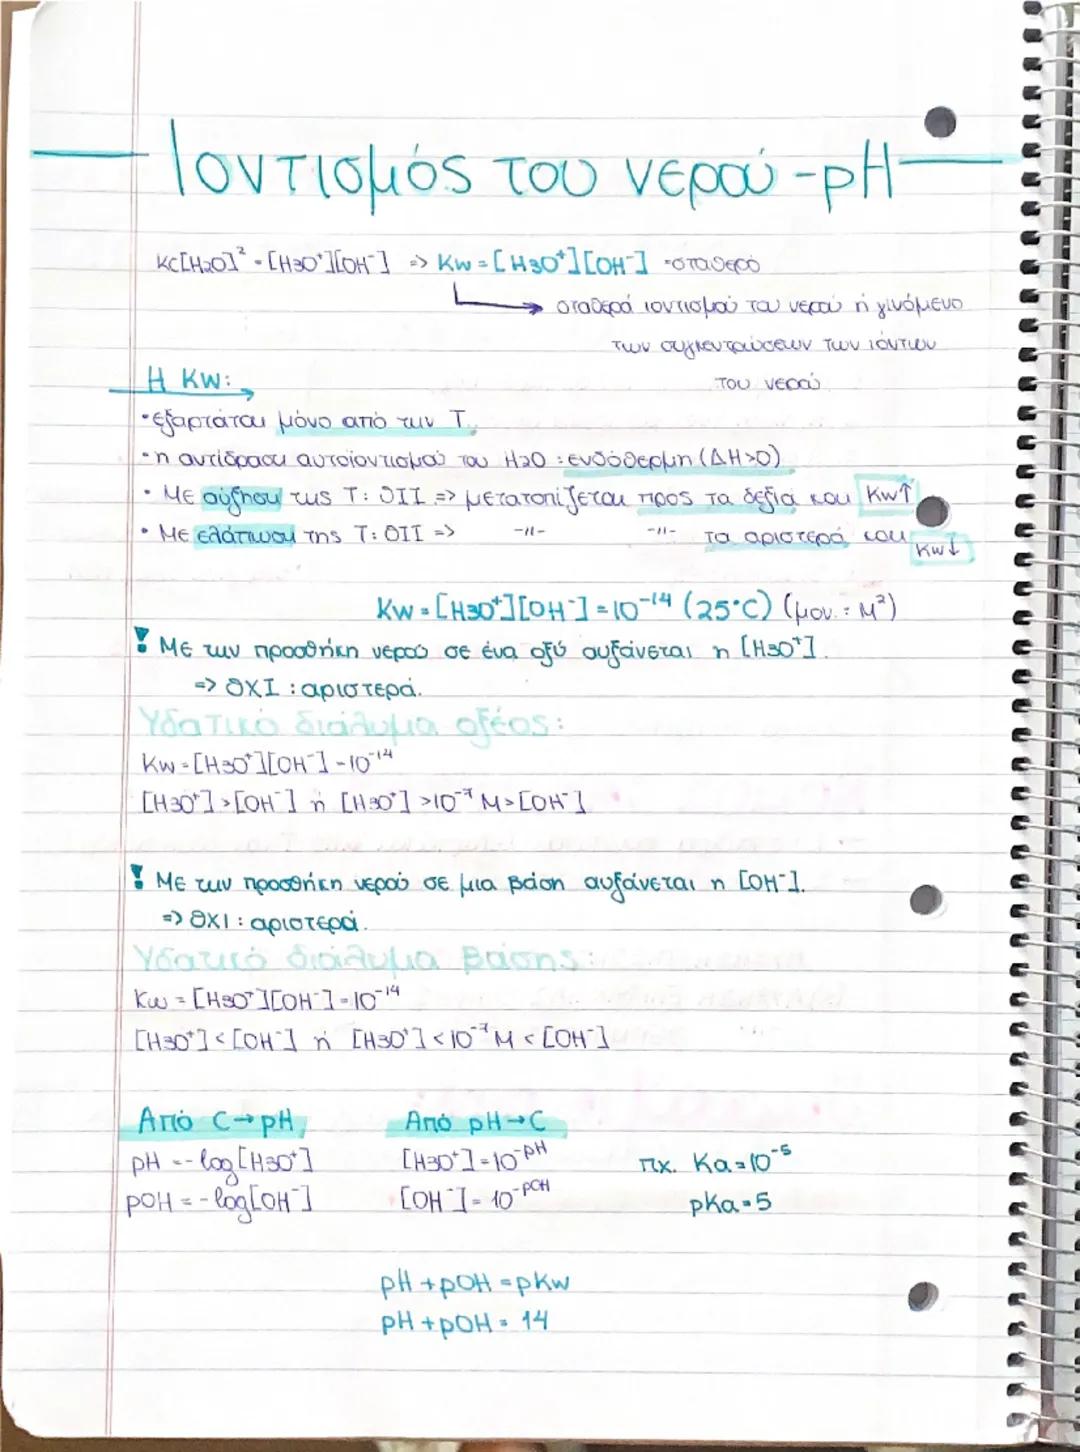 Ιοντισμός του νερού - pH
Kc[H2O]² = [H3O⁺][OH⁻] => Kw = [H3O⁺][OH⁻] = σταθερό
σταθερά ιοντισμού του νερού ή γινόμενο
των συγκεντρώσεων των ιόντων
του νερού
Η Kw:
• εξαρτάται μόνο από την T.
• η αντίδραση αυτοϊοντισμού του H2O : ενδόθερμη (ΔH>0)
• Με αύξηση της T: ΘΙΙ => μετατοπίζεται προς τα δεξιά και Kw↑
• Με ελάττωση της T: ΘΙΙ => -11- -11- τα αριστερά και Kw↓
Kw = [H3O⁺][OH⁻] = 10⁻¹⁴ (25°C) (μον.: M²)
! Με την προσθήκη νερού σε ένα οξύ αυξάνεται η [H3O⁺].
=> ΘΧΙ : αριστερά.
Υδατικό διάλυμα οξέος:
Kw = [H3O⁺][OH⁻] = 10⁻¹⁴
[H3O⁺] > [OH⁻] ή [H3O⁺] > 10⁻⁷ M > [OH⁻]
! Με την προσθήκη νερού σε μια βάση αυξάνεται η [OH⁻].
=> ΘΧΙ : αριστερά.
Υδατικό διάλυμα βάσης:
Kw = [H3O⁺][OH⁻] = 10⁻¹⁴
[H3O⁺] < [OH⁻] ή [H3O⁺] < 10⁻⁷ M < [OH⁻]
Από C → pH Από pH → C
pH = -log[H3O⁺] [H3O⁺] = 10⁻ᵖᴴ πχ. Ka = 10⁻⁵
pOH = -log[OH⁻] [OH⁻] = 10⁻ᵖᴼᴴ pKa = 5
pH + pOH = pKw
pH + pOH = 14